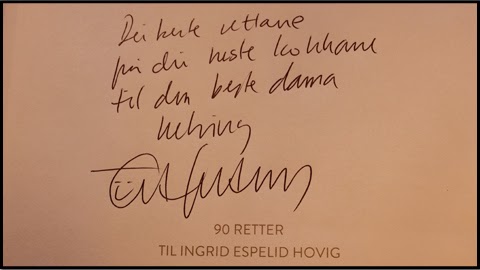 Dei beste rettane
frå dei beste kokkane
til den beste dama
helsing
90 RETTER
TIL INGRID ESPELID HOVIG